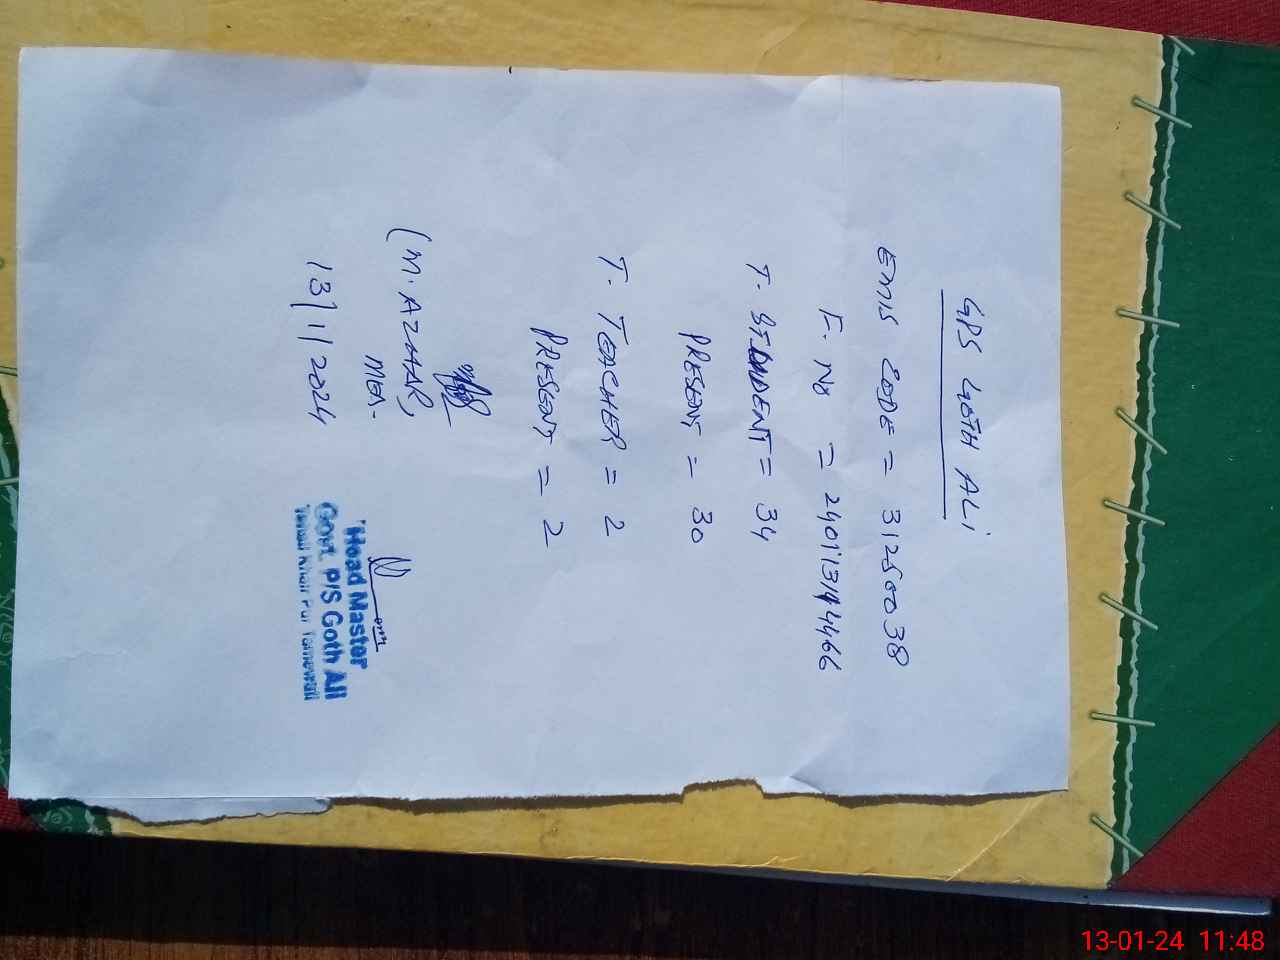 GPS GOTH ALI
EMIS CODE = 31250038
F. No = 24011314466
T. STUDENT = 34
PRESENT = 30
T. TEACHER = 2
PRESENT = 2
(M. AZHAR,
MEA.
13/1/2024
Head Master
Govt. P/S Goth Ali
Tehsil Khair Pur Tamewali
13-01-24 11:48